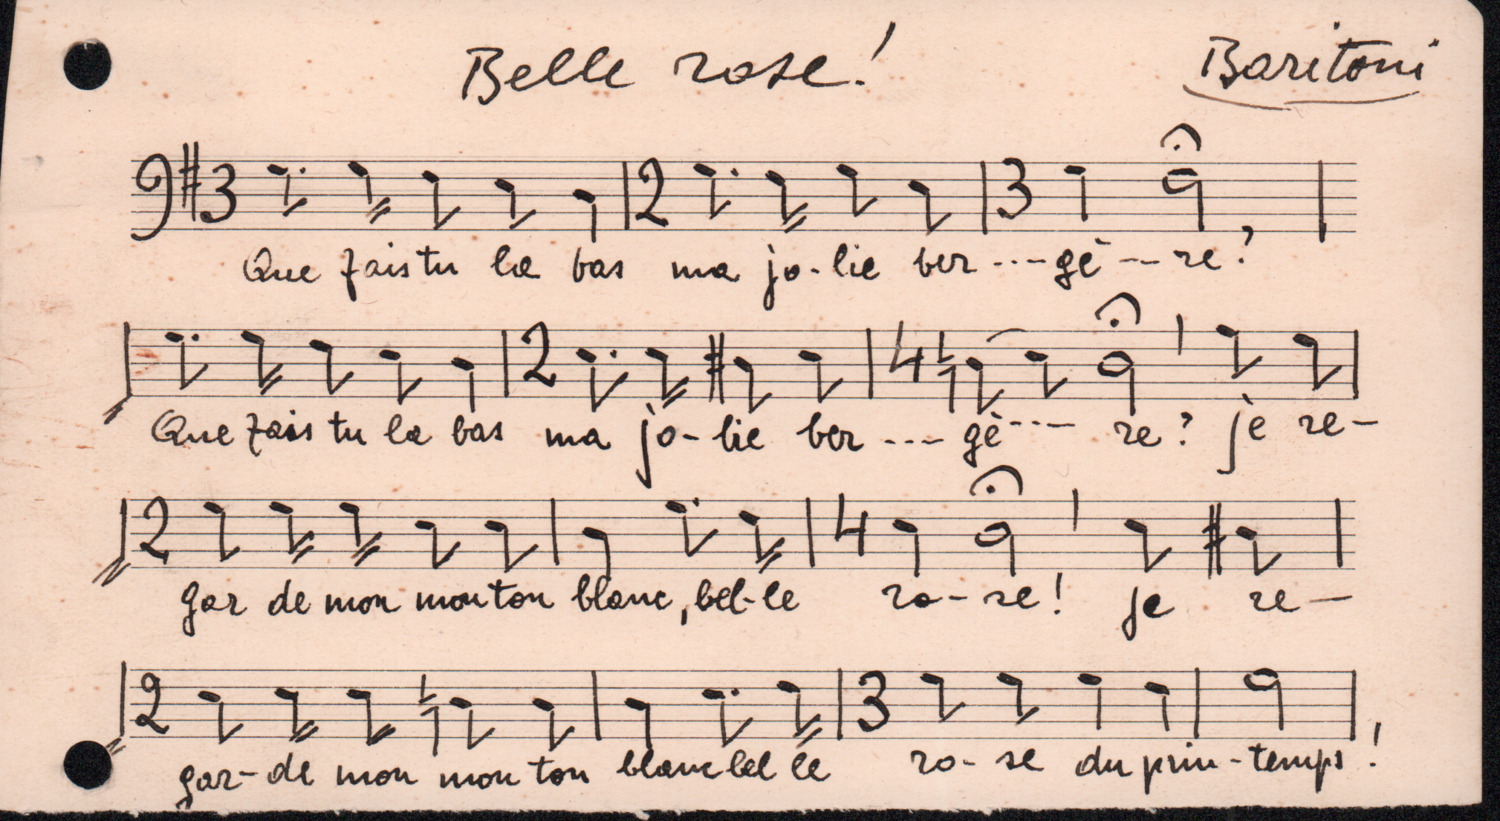 Belle rose!
Baritoni
3 2 3
Que fais tu la bas ma jo-lie ber ----gè---re?
2 4
Que fais tu la bas ma jo-lie ber ----gè---- re? je re-
2 4
gar de mon mouton blanc, bel-le ro-se! je re-
2 3
gar-de mon mou ton blanc bel le ro-se du prin-temps!